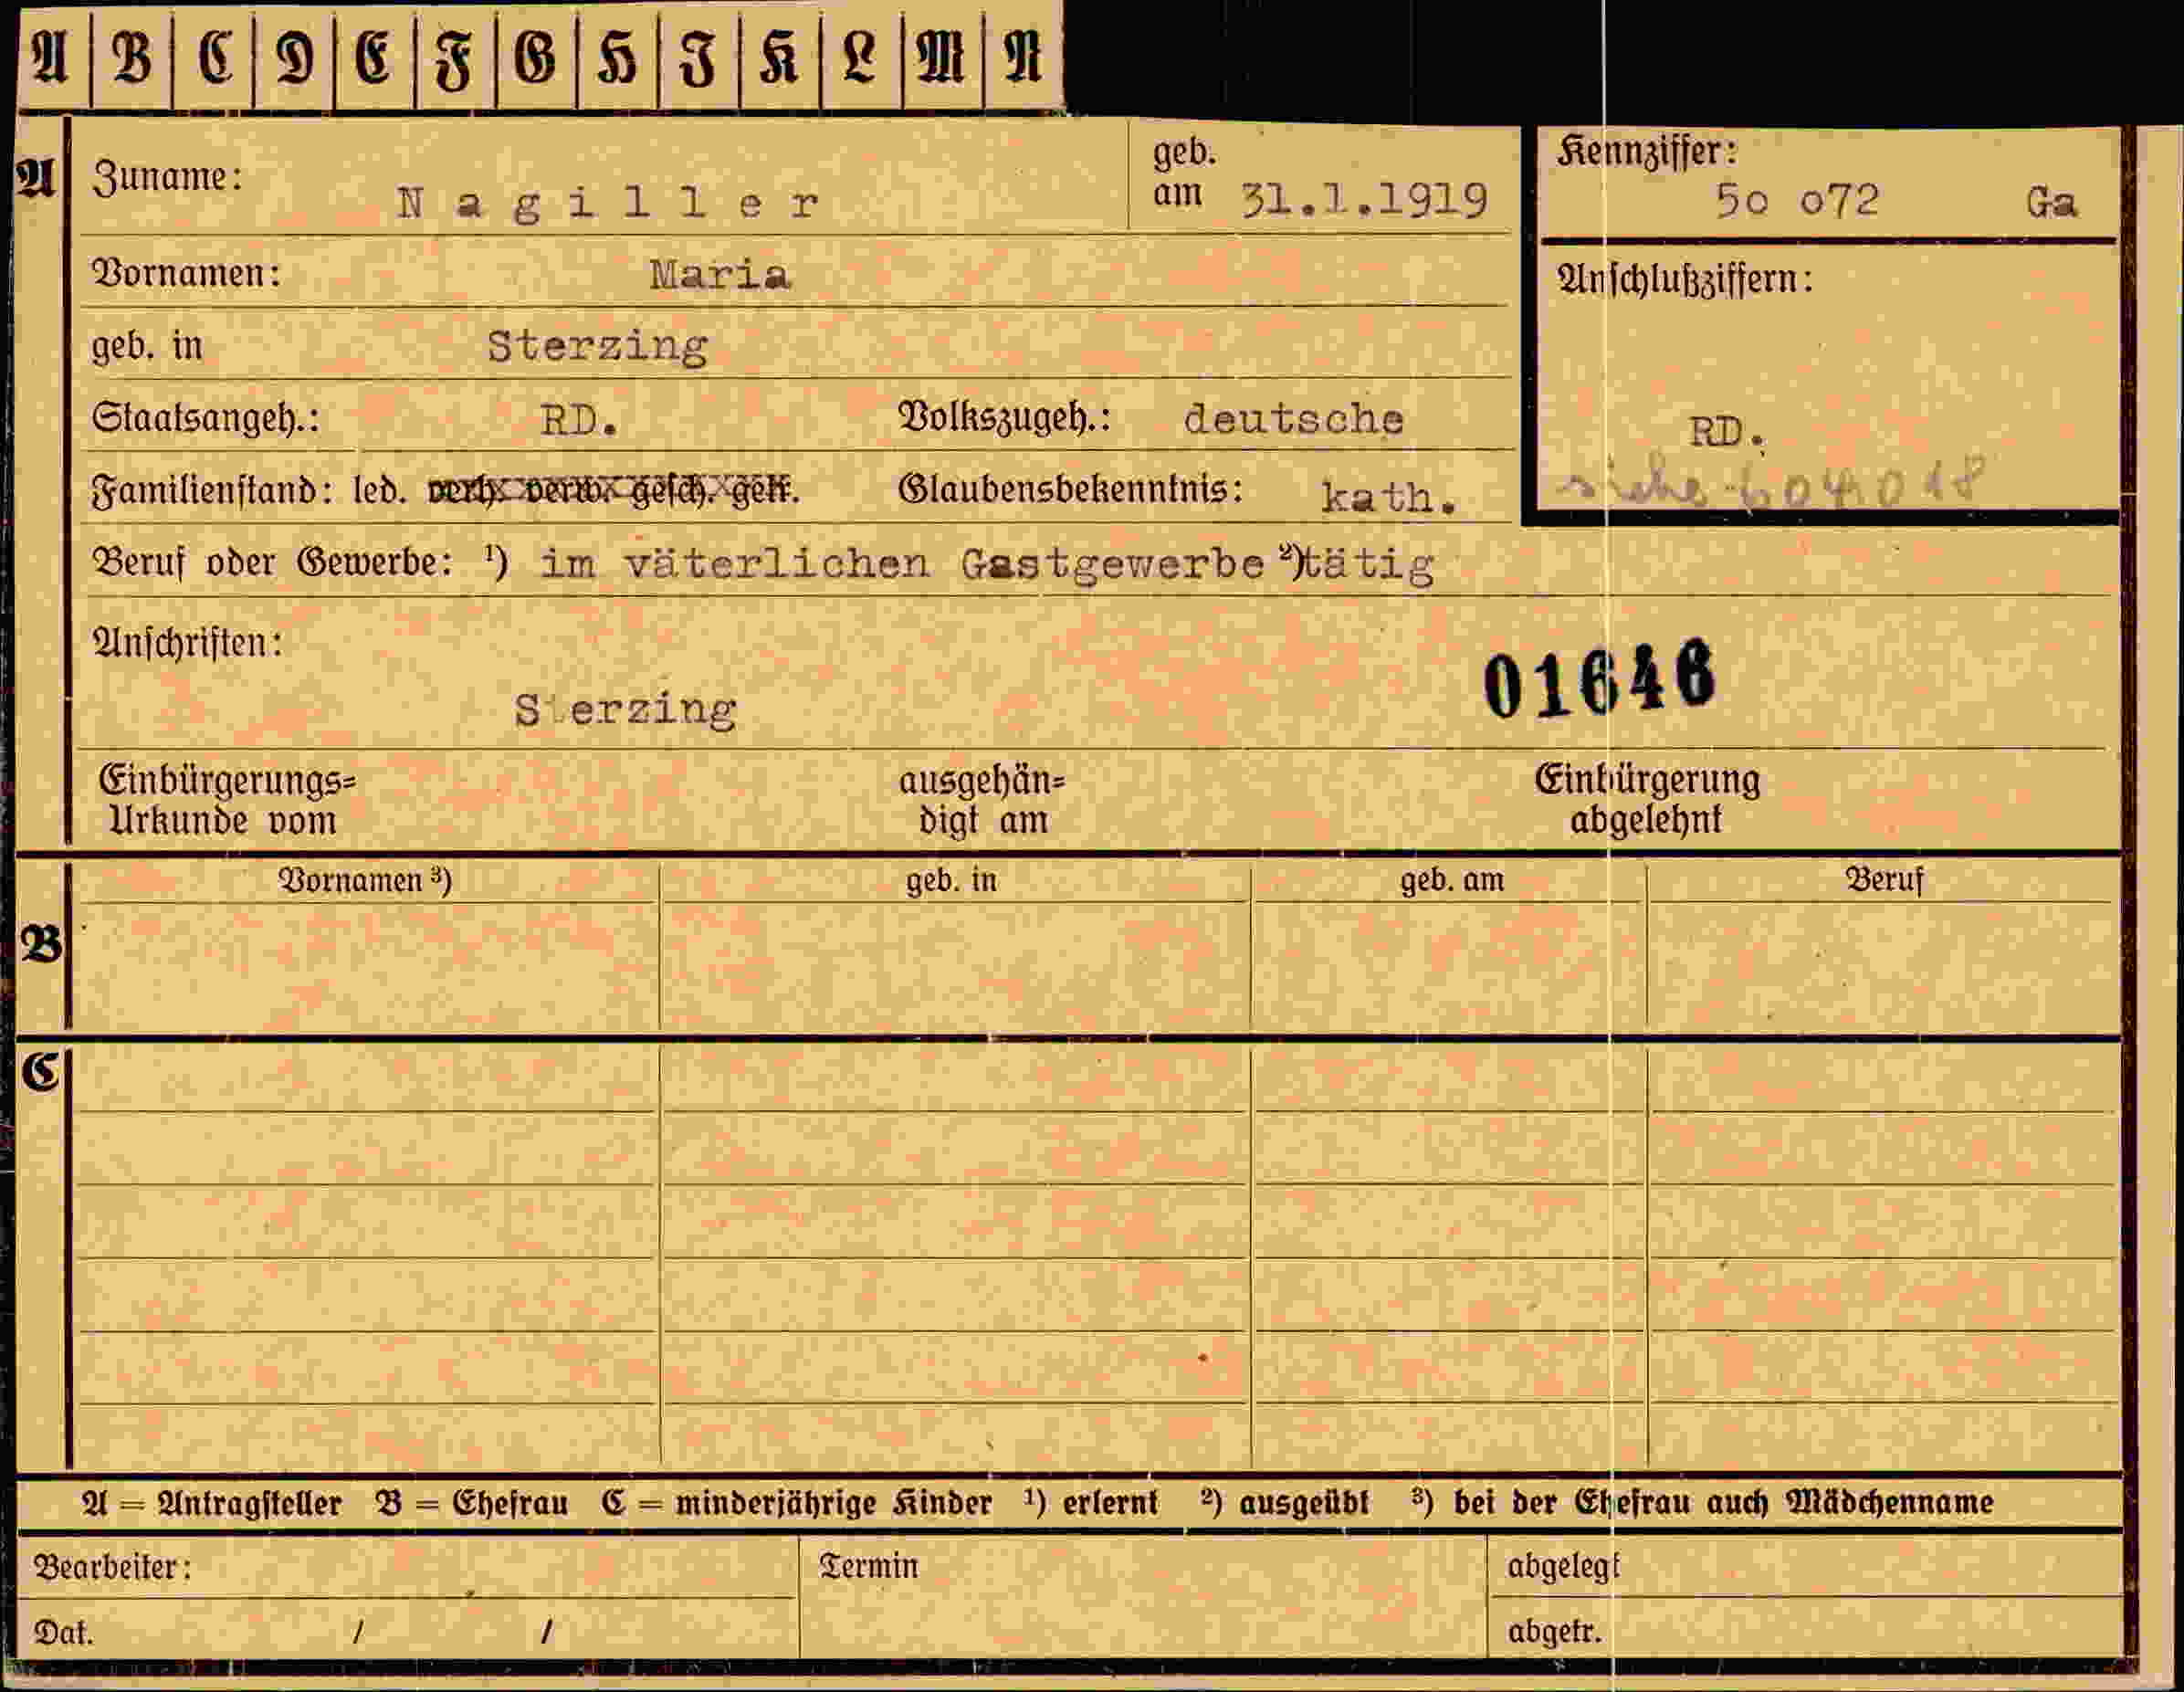 A B C D E F G H I K L M N
A Zuname: Nagiller geb. am 31.1.1919 Kennziffer: 50 072 Ga
Vornamen: Maria Anschlußziffern:
geb. in Sterzing
Staatsangeh.: RD. Volkszugeh.: deutsche RD.
Familienstand: led. verh. verw. gesch. getr. Glaubensbekenntnis: kath. siehe 604018
Beruf oder Gewerbe: ¹) im väterlichen Gastgewerbe ²) tätig
Anschriften: 01646
S erzing
Einbürgerungs= ausgehän= Einbürgerung
Urkunde vom digt am abgelehnt
Vornamen ³) geb. in geb. am Beruf
B
C
A = Antragsteller B = Ehefrau C = minderjährige Kinder ¹) erlernt ²) ausgeübt ³) bei der Ehefrau auch Mädchenname
Bearbeiter: Termin abgelegt
Dat. / / abgetr.